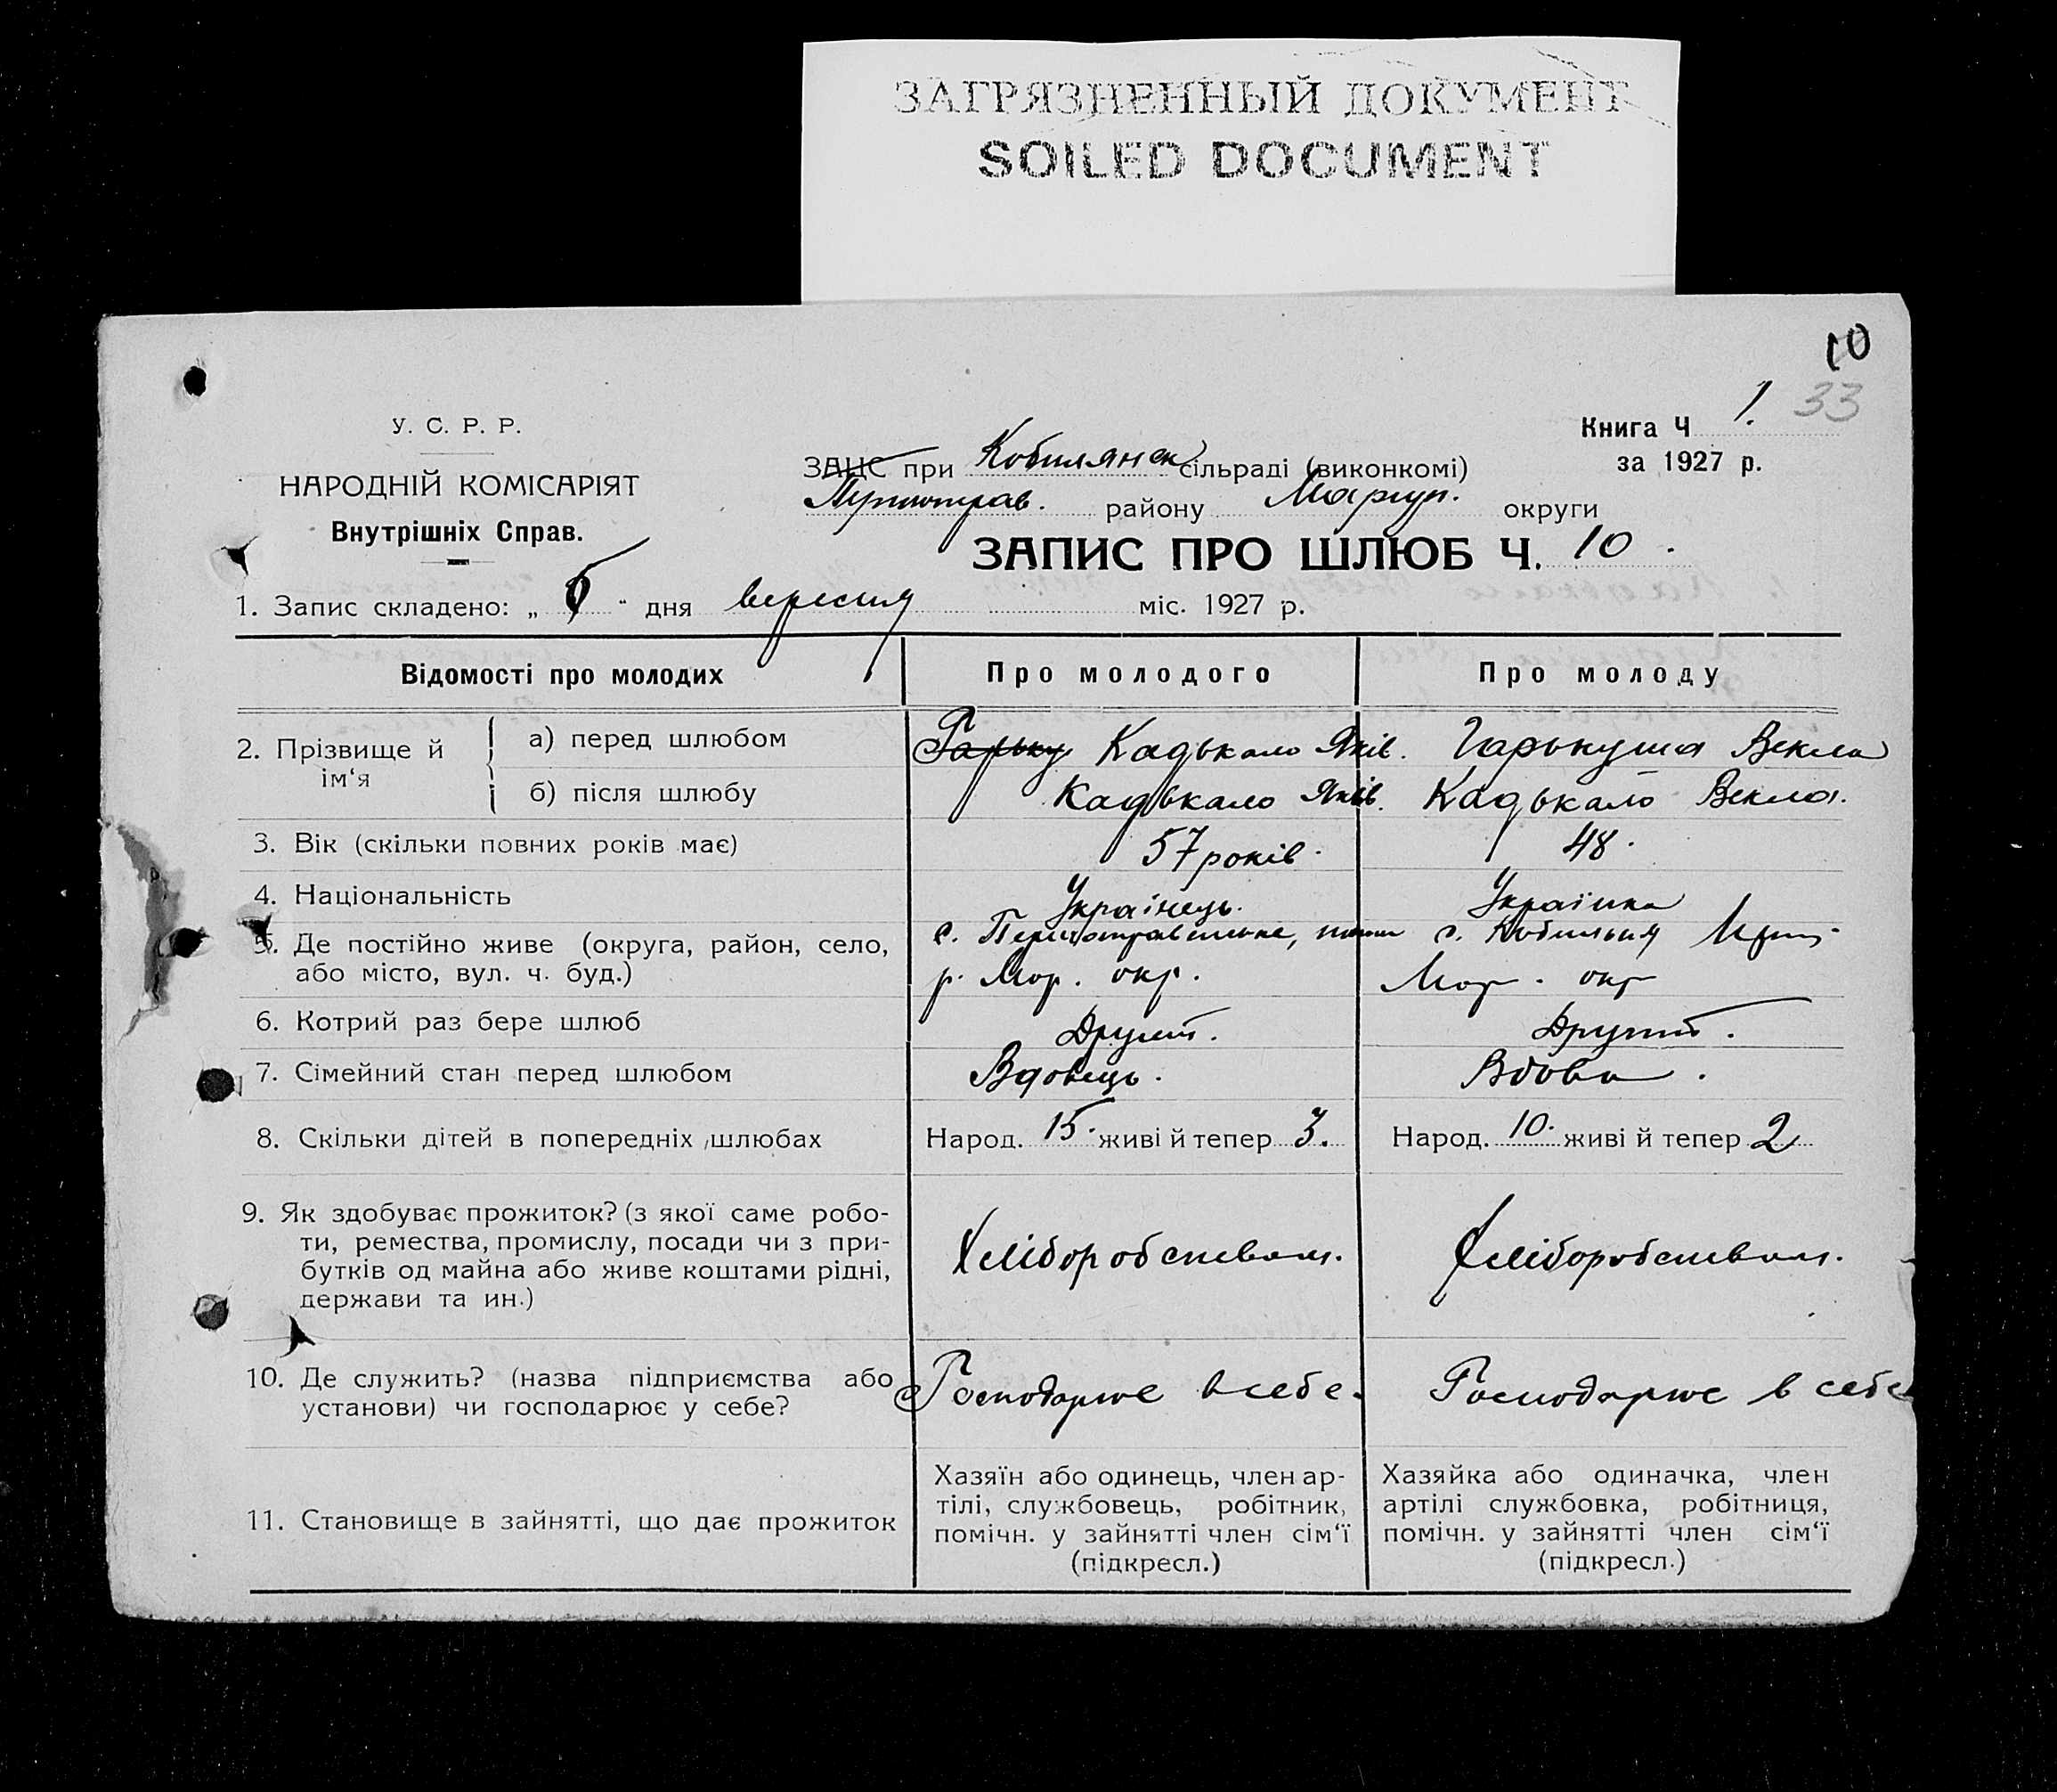 ЗАГРЯЗНЕННЫЙ ДОКУМЕНТ
SOILED DOCUMENT
10
33
У. С. Р. Р.
НАРОДНІЙ КОМІСАРІЯТ
Внутрішніх Справ.
Книга Ч 1.
за 1927 р.
ЗАЦС при Кобилянск сільраді (виконкомі)
району Маріуп. округи
ЗАПИС ПРО ШЛЮБ Ч. 10.
1. Запис складено: „ " дня вересня міс. 1927 р.
Відомості про молодих Про молодого Про молоду
2. Прізвище й ім‘я
а) перед шлюбом Гарьку Кадькало Яків. Гарькуша Векла
б) після шлюбу Кадькало Яків. Кадькало Векла.
3. Вік (скільки повних років має) 57 років. 48.
4. Національність Українець. Українка
5. Де постійно живе (округа, район, село, с. с.
або місто, вул. ч. буд.) р. Мар. окр. Мар. окр
6. Котрий раз бере шлюб Другий. Другий.
7. Сімейний стан перед шлюбом Вдовець. Вдова.
8. Скільки дітей в попередніх шлюбах Народ. 15. живі й тепер 3. Народ. 10. живі й тепер 2
9. Як здобуває прожиток? (з якої саме робо-
ти, ремества, промислу, посади чи з при- Хліборобством. Хліборобством.
бутків од майна або живе коштами рідні,
держави та ин.)
10. Де служить? (назва підприємства або Господарює в себе. Господарює в себе
установи) чи господарює у себе?
11. Становище в зайнятті, що дає прожиток
Хазяїн або одинець, член ар-
тілі, службовець, робітник,
помічн. у зайнятті член сім‘ї
(підкресл.)
Хазяйка або одиначка, член
артілі службовка, робітниця,
помічн. у зайнятті член сім‘ї
(підкресл.)